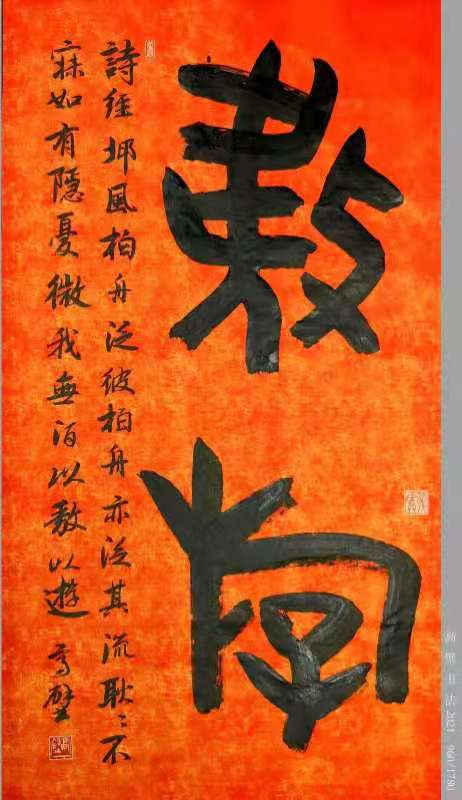 敖斿
詩經邶風柏舟泛彼柏舟亦泛其流耿〻不
寐如有隱憂微我無酒以敖以遊 高壁
高壁书法2021 960/1780